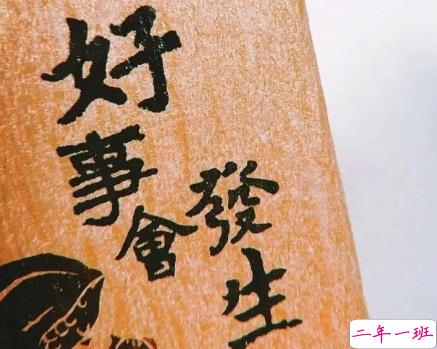 好事會發生
二年一班